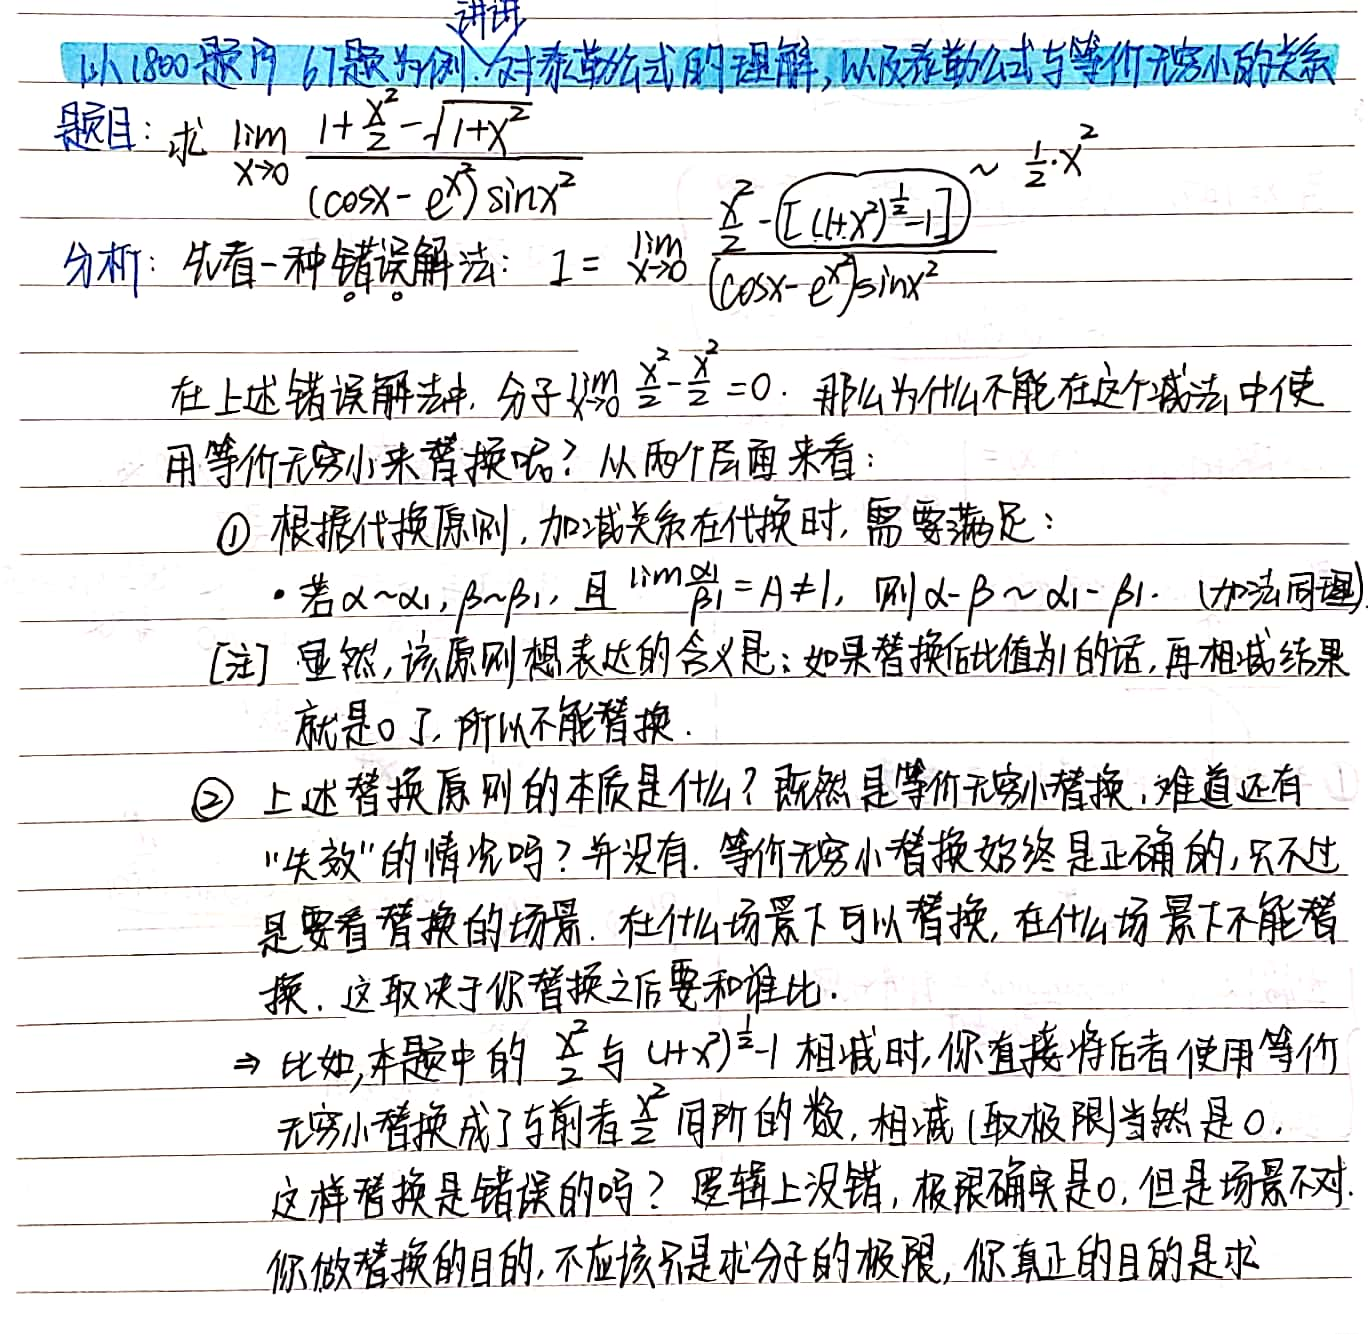 讲讲
以1800题的 67题为例,对泰勒公式的理解,以及泰勒公式与等价无穷小的关系
题目: 求 lim x→0 (1+x²/2-√(1+x²)) / ((cosx-e^(x²))sinx²)
分析: 先看一种错误解法: I = lim x→0 (x²/2-[(1+x²)^(1/2)-1]) / ((cosx-e^(x²))sinx²) ~ 1/2·x²
在上述错误解法中, 分子 lim x→0 x²/2-x²/2=0. 那么为什么不能在这个减法中使
用等价无穷小来替换呢? 从两个层面来看:
① 根据代换原则, 加减关系在代换时, 需要满足:
• 若α~α₁, β~β₁, 且 lim α₁/β₁=A≠1, 则α-β~α₁-β₁. (加法同理)
[注] 显然, 该原则想表达的含义是: 如果替换后比值为1的话, 再相减结果
就是0了, 所以不能替换.
② 上述替换原则的本质是什么? 既然是等价无穷小替换, 难道还有
"失效"的情况吗? 并没有. 等价无穷小替换始终是正确的, 只不过
是要看替换的场景. 在什么场景下可以替换, 在什么场景下不能替
换. 这取决于你替换之后要和谁比.
⇒ 比如,本题中的 x²/2 与 (1+x²)^(1/2)-1 相减时, 你直接将后者使用等价
无穷小替换成了与前者x²/2同阶的数, 相减(取极限)当然是0.
这样替换是错误的吗? 逻辑上没错, 极限确实是0, 但是场景不对.
你做替换的目的, 不应该只是求分子的极限, 你真正的目的是求